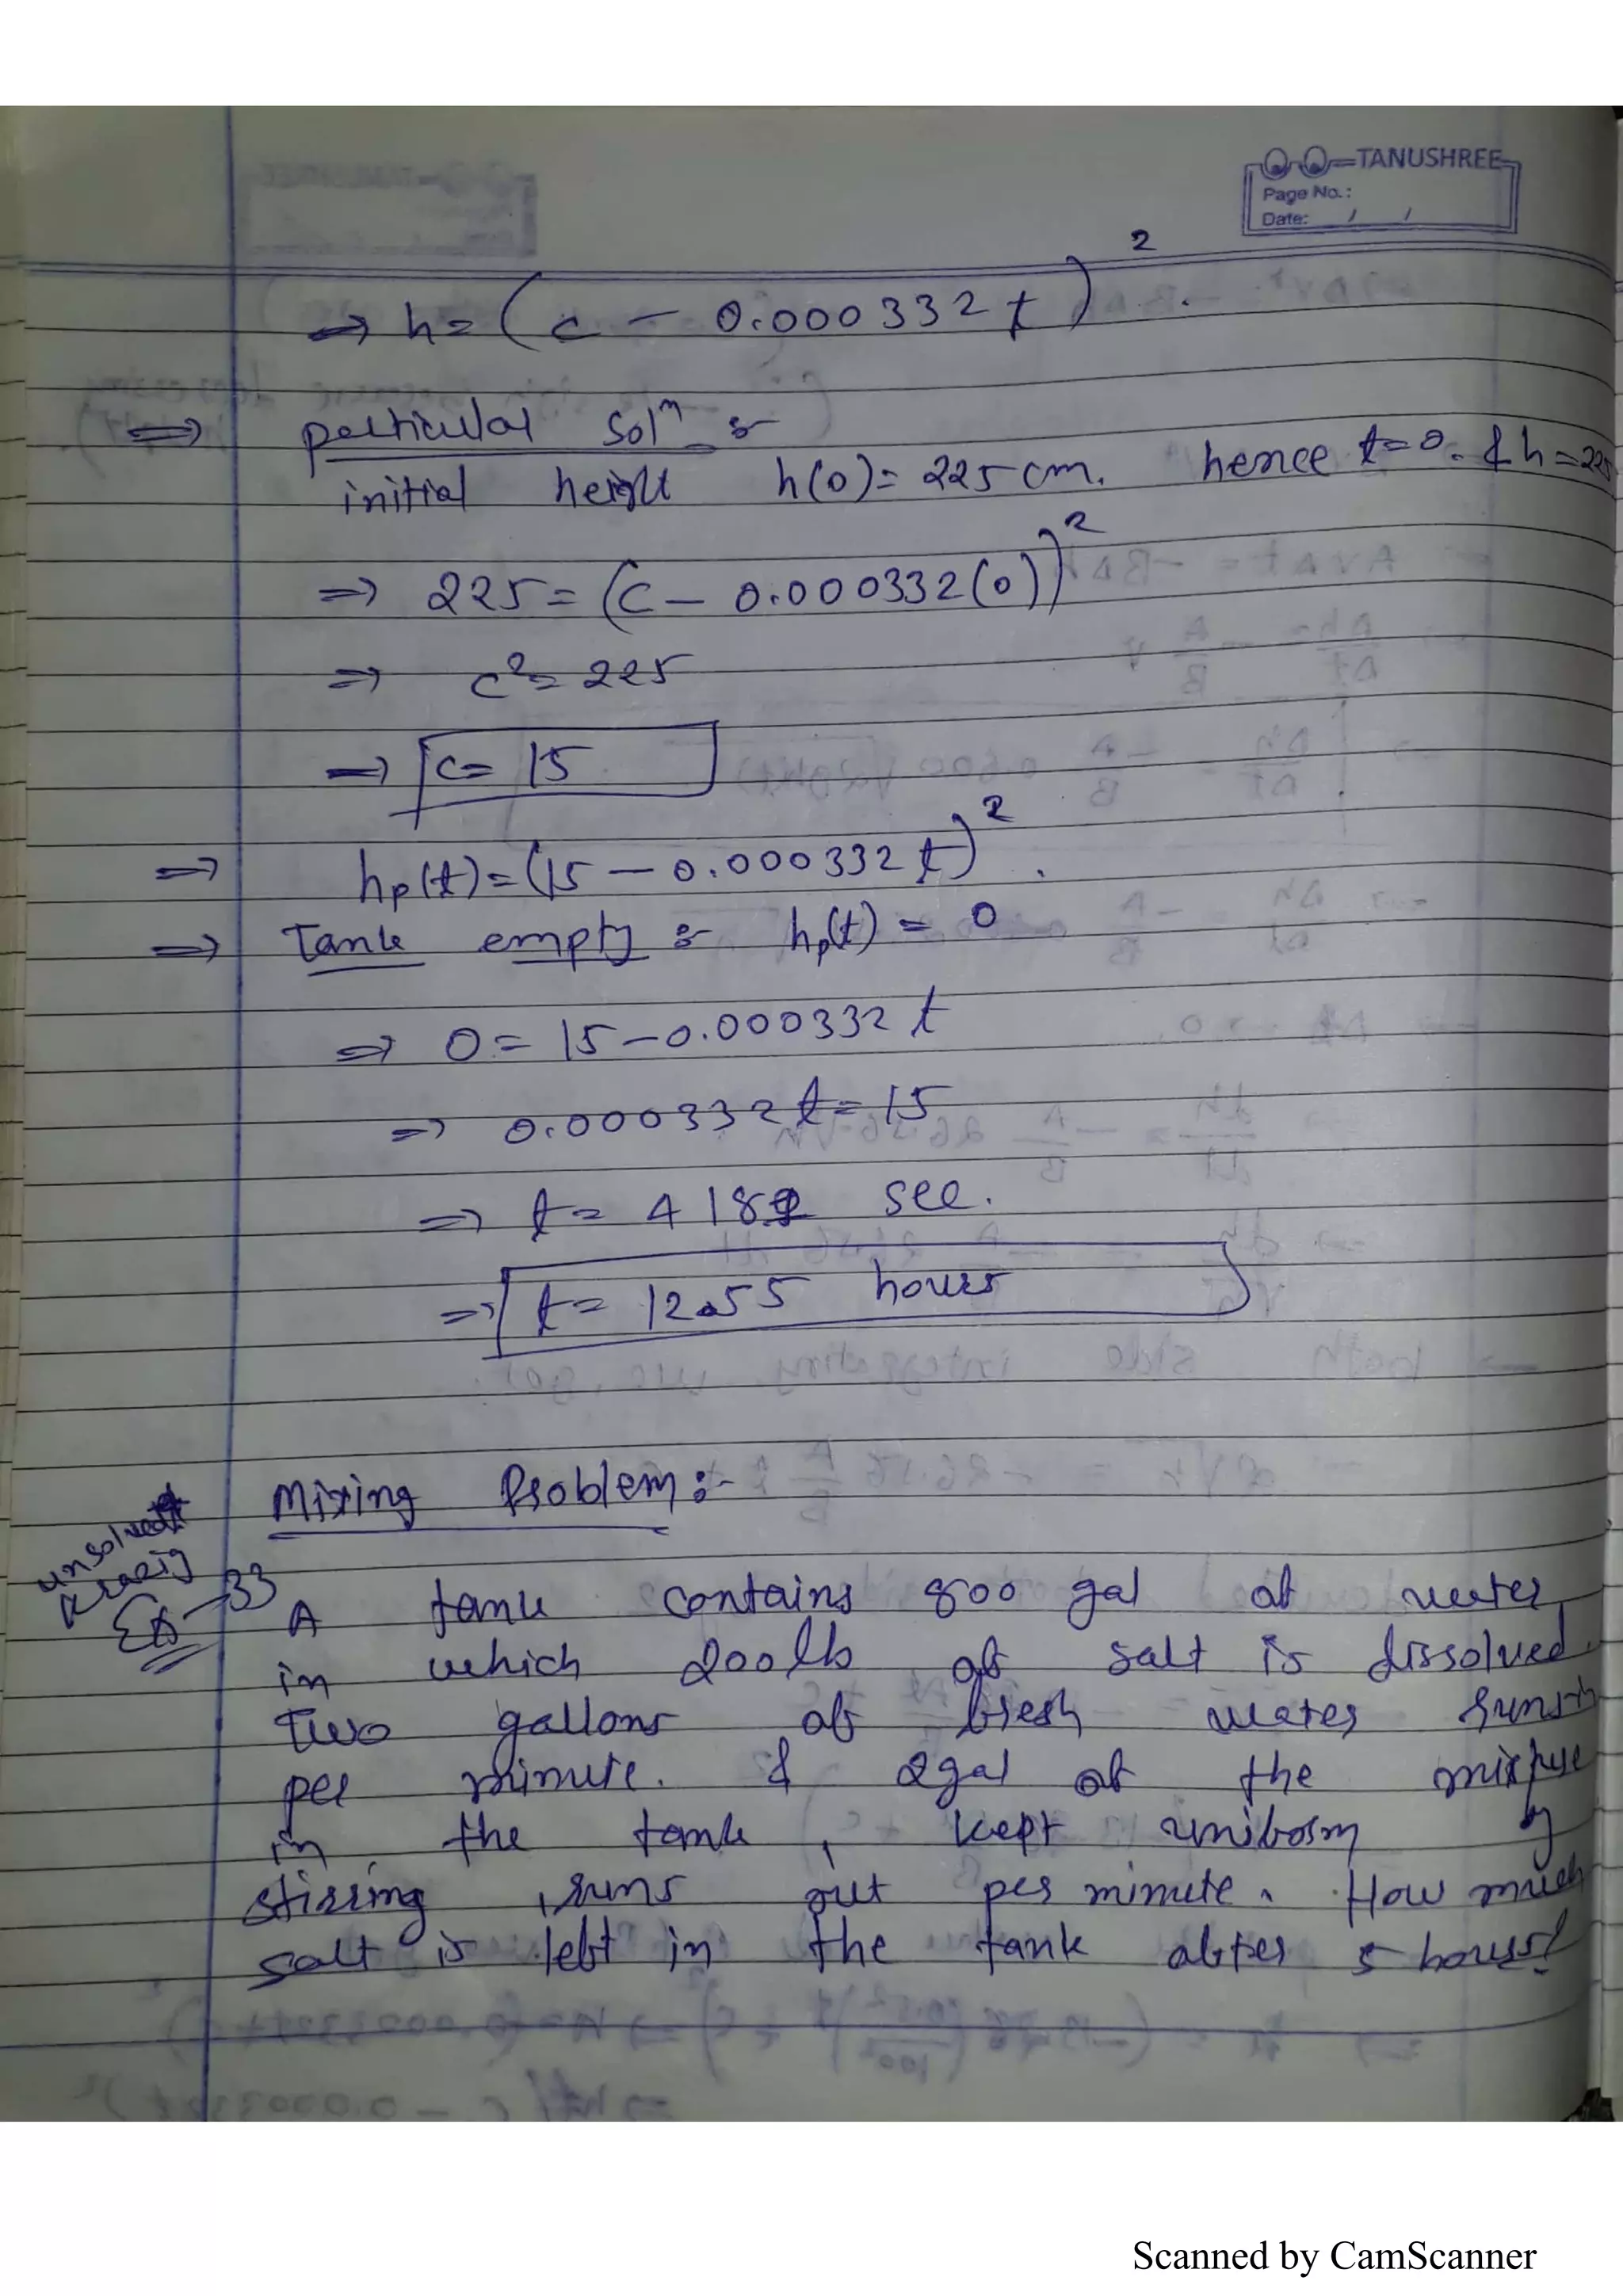 TANUSHREE
Page No.:
Date: / /
⇒ h = (c - 0.000332 t)²
⇒ particular solⁿ :-
initial height h(0) = 225 cm. hence t=0. & h=225
⇒ 225 = (c - 0.000332(0))²
⇒ c² = 225
⇒ c = 15
⇒ hp(t) = (15 - 0.000332 t)².
⇒ Tank empty :- hp(t) = 0
⇒ 0 = 15 - 0.000332 t
⇒ 0.000332 t = 15
⇒ t = sec.
⇒ t = 12.55 hours
Mixing Problem :-
unsolved
Ex-33
A tank contains 800 gal of water
in which 200lb of salt is dissolved.
Two gallons of fresh water runs in
per minute. & 2gal of the mixture
in the tank, kept uniform by
stirring, runs out per minute. How much
salt is left in the tank after 5 hours?
Scanned by CamScanner